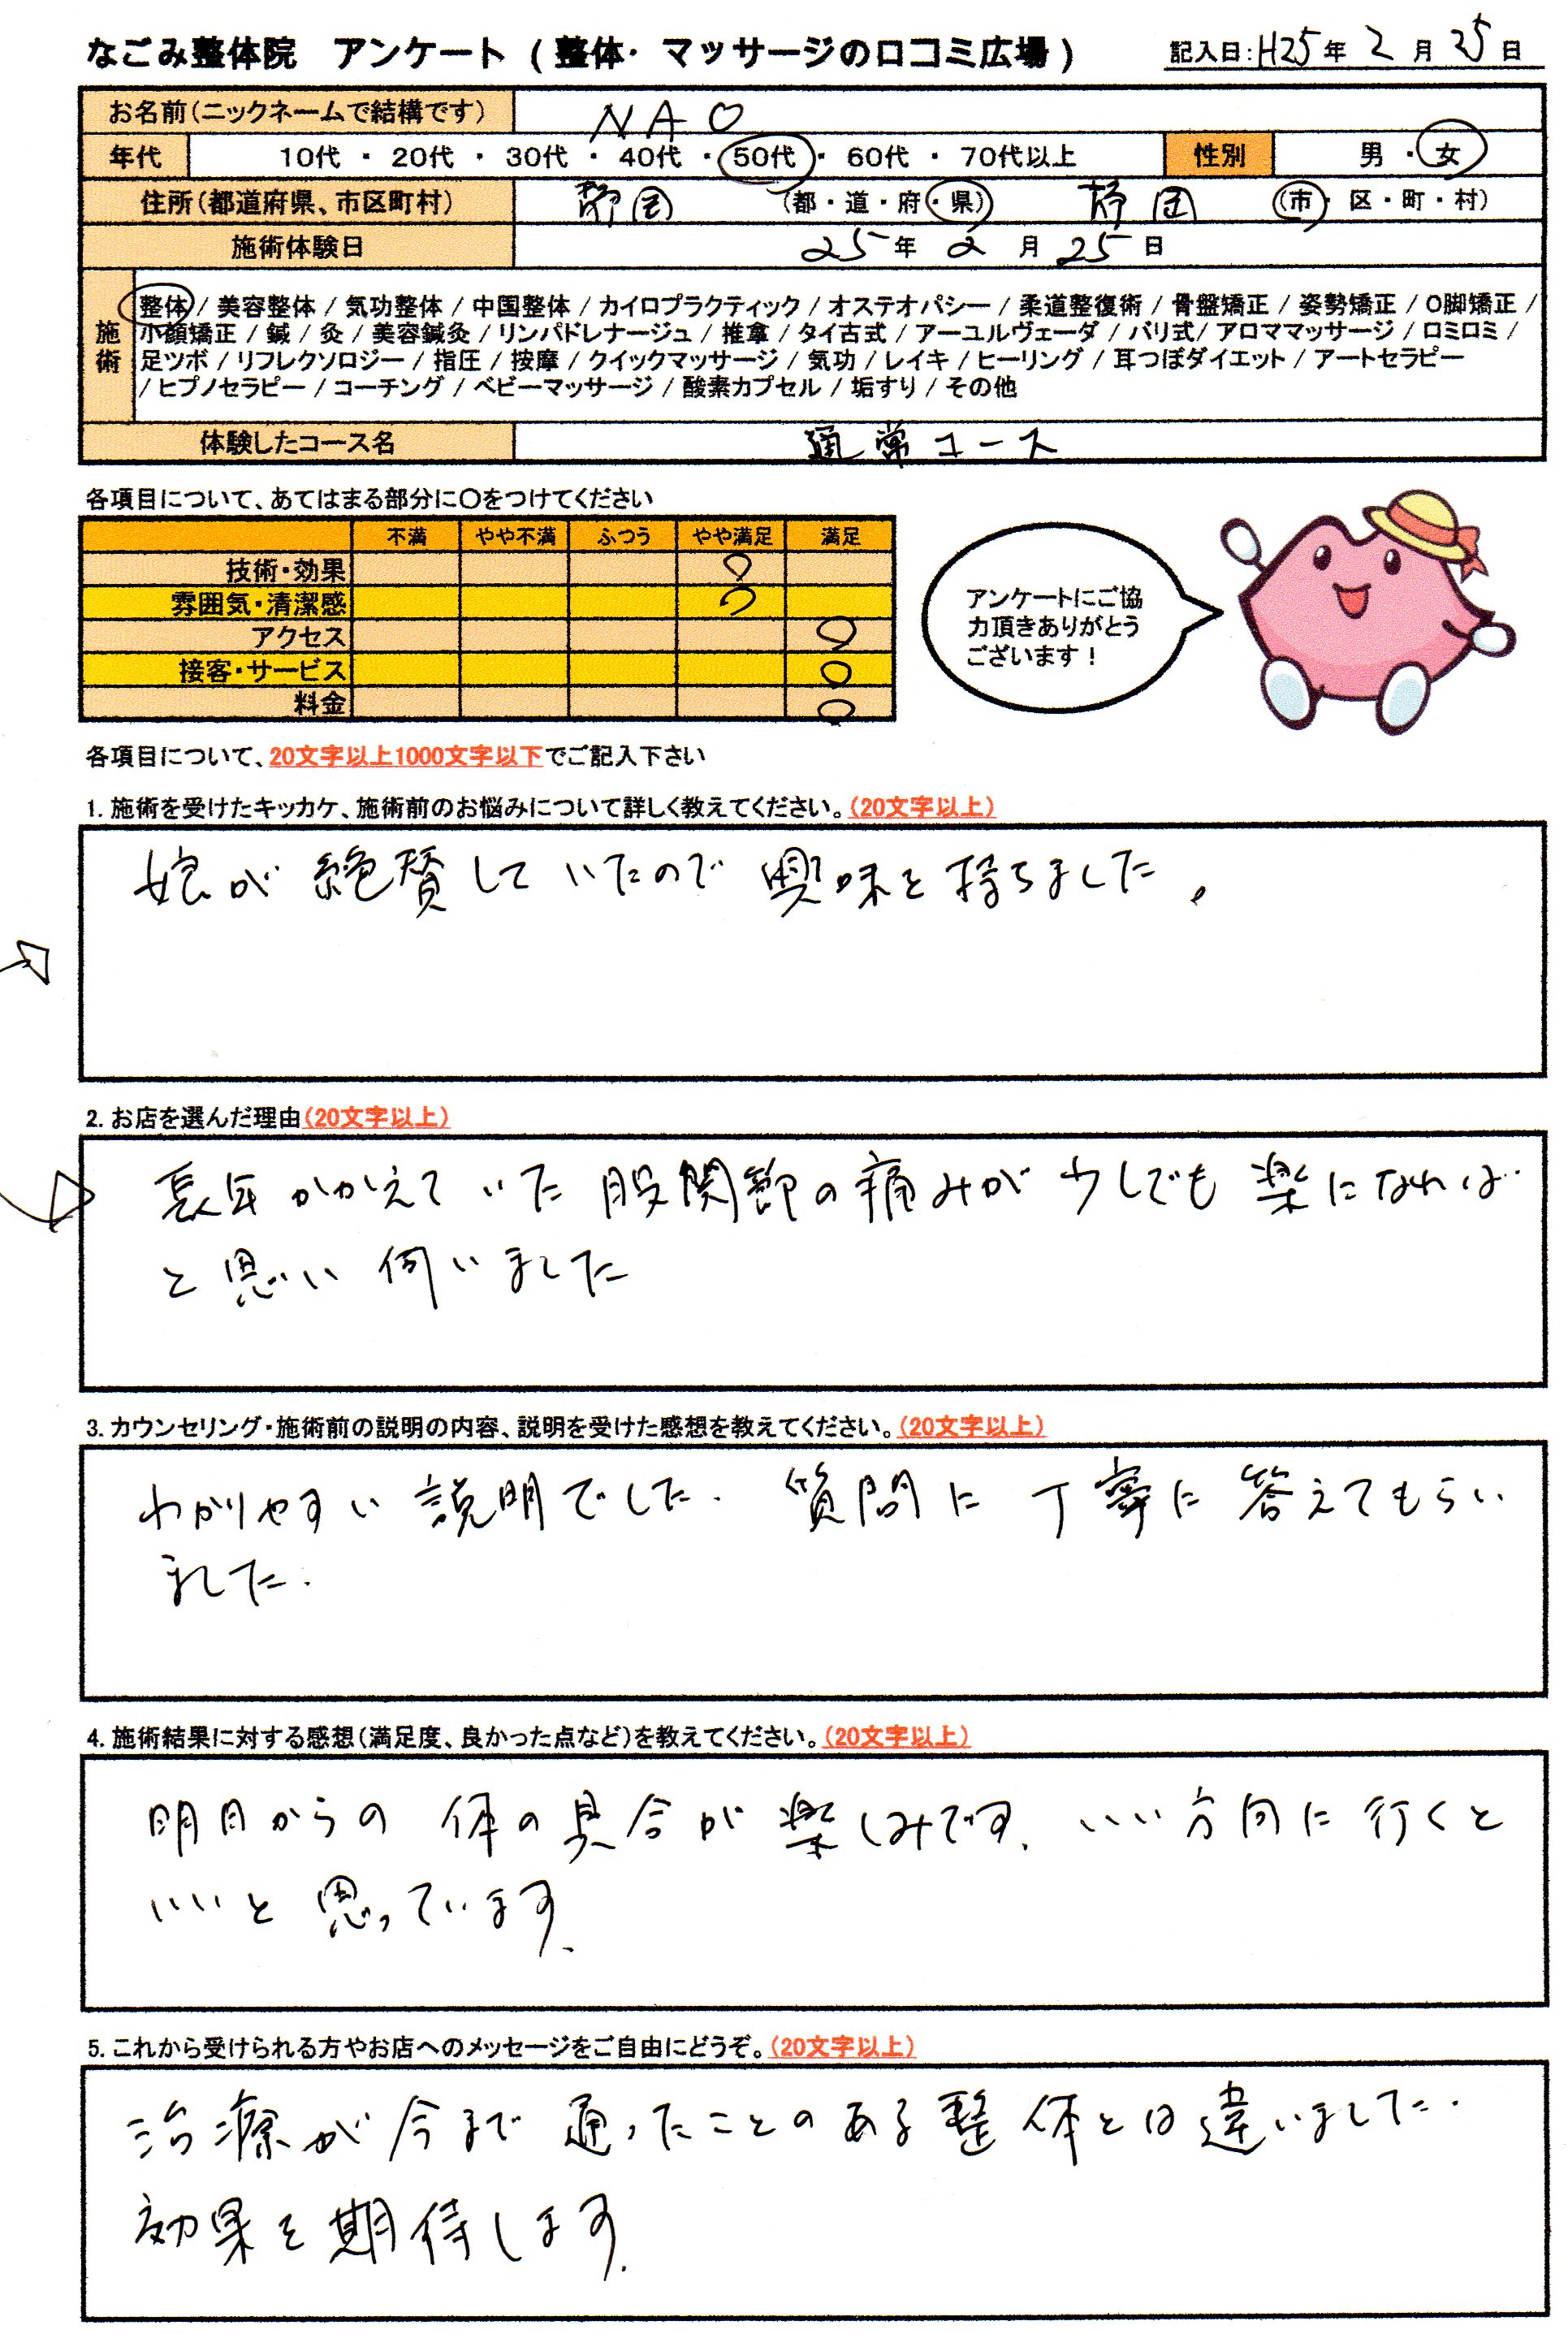 なごみ整体院 アンケート(整体・マッサージの口コミ広場) 記入日:H25年2月25日
お名前(ニックネームで結構です) NAO
年代 10代・20代・30代・40代・50代・60代・70代以上 性別 男・女
住所(都道府県、市区町村) 静岡 (都・道・府・県) 静岡 (市・区・町・村)
施術体験日 25年2月25日
施術
整体/美容整体/気功整体/中国整体/カイロプラクティック/オステオパシー/柔道整復術/骨盤矯正/姿勢矯正/O脚矯正/
小顔矯正/鍼/灸/美容鍼灸/リンパドレナージュ/推拿/タイ古式/アーユルヴェーダ/バリ式/アロママッサージ/ロミロミ/
足ツボ/リフレクソロジー/指圧/按摩/クイックマッサージ/気功/レイキ/ヒーリング/耳つぼダイエット/アートセラピー
/ヒプノセラピー/コーチング/ベビーマッサージ/酸素カプセル/垢すり/その他
体験したコース名 通常コース
各項目について、あてはまる部分に○をつけてください
不満 やや不満 ふつう やや満足 満足
技術・効果
雰囲気・清潔感
アクセス
接客・サービス
料金
アンケートにご協
力頂きありがとう
ございます!
各項目について、20文字以上1000文字以下でご記入下さい
1. 施術を受けたキッカケ、施術前のお悩みについて詳しく教えてください。(20文字以上)
娘が絶賛していたので興味を持ちました。
2. お店を選んだ理由(20文字以上)
長年かかえていた股関節の痛みが少しでも楽になれば
と思い伺いました
3. カウンセリング・施術前の説明の内容、説明を受けた感想を教えてください。(20文字以上)
わかりやすい説明でした. 質問に丁寧に答えてもらい
ました.
4. 施術結果に対する感想(満足度、良かった点など)を教えてください。(20文字以上)
明日からの体の具合が楽しみです. いい方向に行くと
いいと思っています.
5. これから受けられる方やお店へのメッセージをご自由にどうぞ。(20文字以上)
治療が今まで通ったことのある整体とは違いました.
効果を期待します.